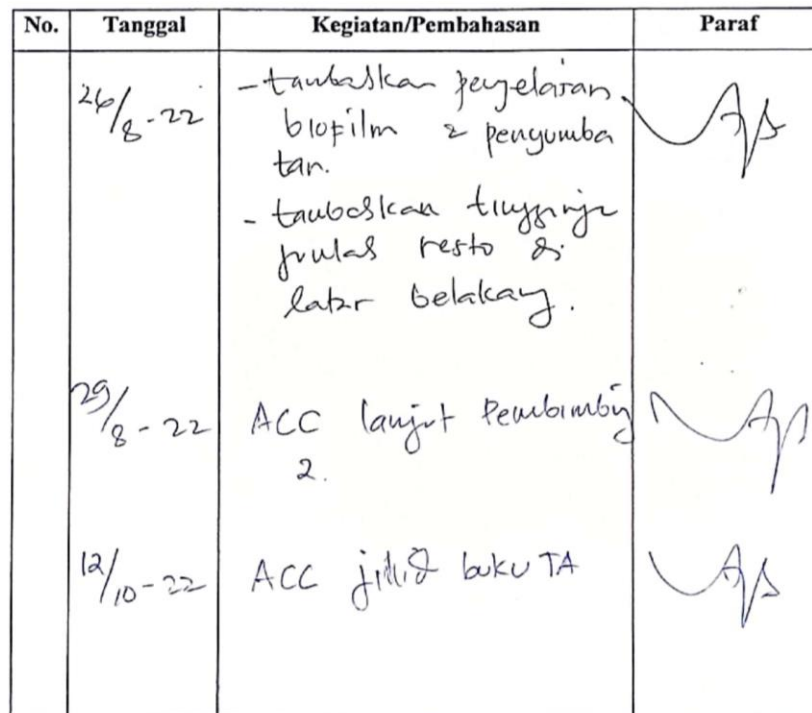 No. Tanggal Kegiatan/Pembahasan Paraf
26/8-22 - tambahkan penjelasan
biofilm & penyumba
tan.
- tambahkan tingginya
jumlah resto di
latar belakang.
29/8-22 ACC lanjut Pembimbing
2.
12/10-22 ACC jilid buku TA